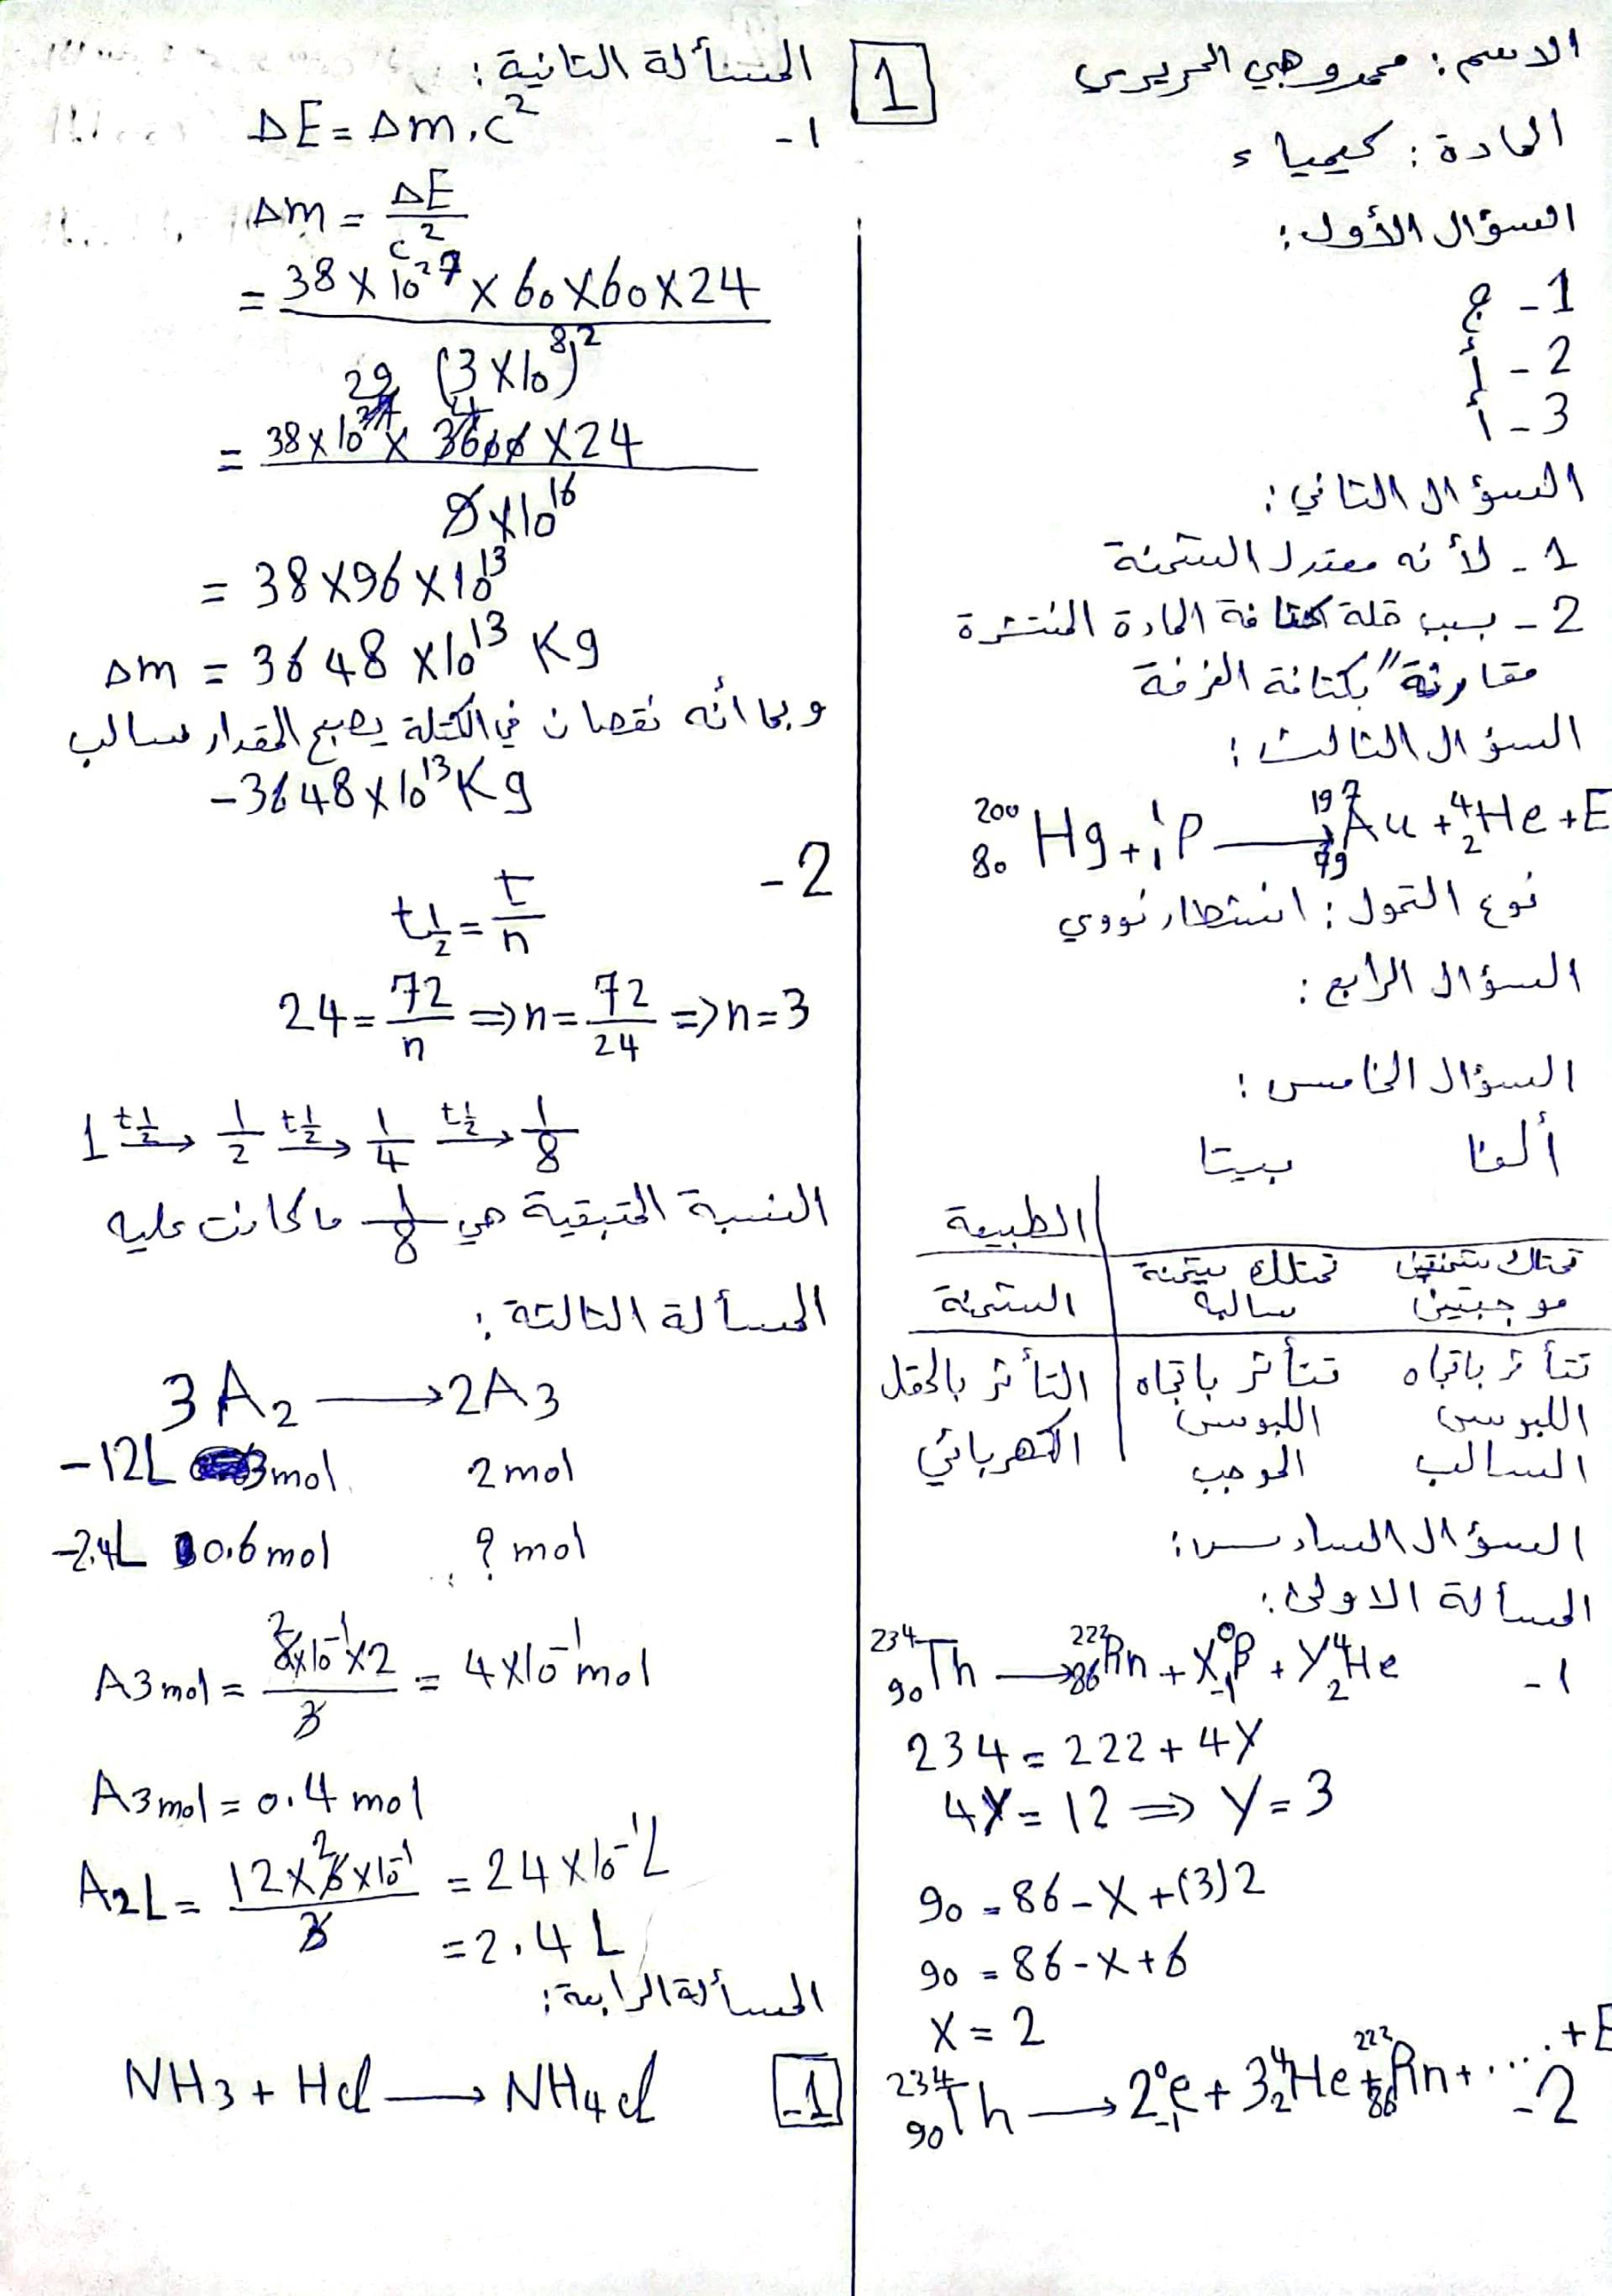 1
الاسم: محمد وهبي الحريري
المادة: كيمياء
السؤال الأول:
1 - ج
2 - أ
3 - أ
السؤال الثاني:
1 - لأنه معتدل الشحنة
2 - بسبب قلة كثافة المادة المنتشرة
مقارنة" بكثافة الغرفة
السؤال الثالث:
²⁰⁰₈₀Hg + ¹₁P → ¹⁹⁷₇₉Au + ⁴₂He + E
نوع التحول: انشطار نووي
السؤال الرابع:
السؤال الخامس:
ألفا بيتا
الطبيعة
تمتلك شحنتين تمتلك شحنة الشحنة
موجبتين سالبة
تتأثر باتجاه تتأثر باتجاه التأثر بالحقل
اللبوس اللبوس الكهربائي
السالب الموجب
السؤال السادس:
المسألة الاولى:
1 - ²³⁴₉₀Th → ²²²₈₆Rn + X⁰₋₁β + Y⁴₂He
234 = 222 + 4Y
4Y = 12 ⇒ Y = 3
90 = 86 - X + (3)2
90 = 86 - X + 6
X = 2
2 - ²³⁴₉₀Th → 2⁰₋₁e + 3⁴₂He + ²²²₈₆Rn + .... + E
المسألة الثانية:
1 - ΔE = Δm . c²
Δm = ΔE / c²
= 38 × 10²⁷ × 60 × 60 × 24 / (3 × 10⁸)²
= 38 × 10²⁹ × 4 3600 × 24 / 9 × 10¹⁶
= 38 × 96 × 10¹³
Δm = 3648 × 10¹³ Kg
وبما أنه نقصان في الكتلة يصبح المقدار سالب
-3648 × 10¹³ Kg
2 -
t½ = t / n
24 = 72 / n ⇒ n = 72 / 24 ⇒ n = 3
1 t½→ 1/2 t½→ 1/4 t½→ 1/8
النسبة المتبقية هي 1/8 ما كانت عليه
المسألة الثالثة:
3A₂ → 2A₃
-12L 3mol 2mol
-2.4L 0.6mol ? mol
A3mol = 2 6×10⁻¹×2 / 3 = 4×10⁻¹ mol
A3mol = 0.4 mol
A₂L = 12×2 6×10⁻¹ / 3 = 24×10⁻¹ L
= 2.4 L
المسألة الرابعة:
1- NH₃ + Hcl → NH₄cl